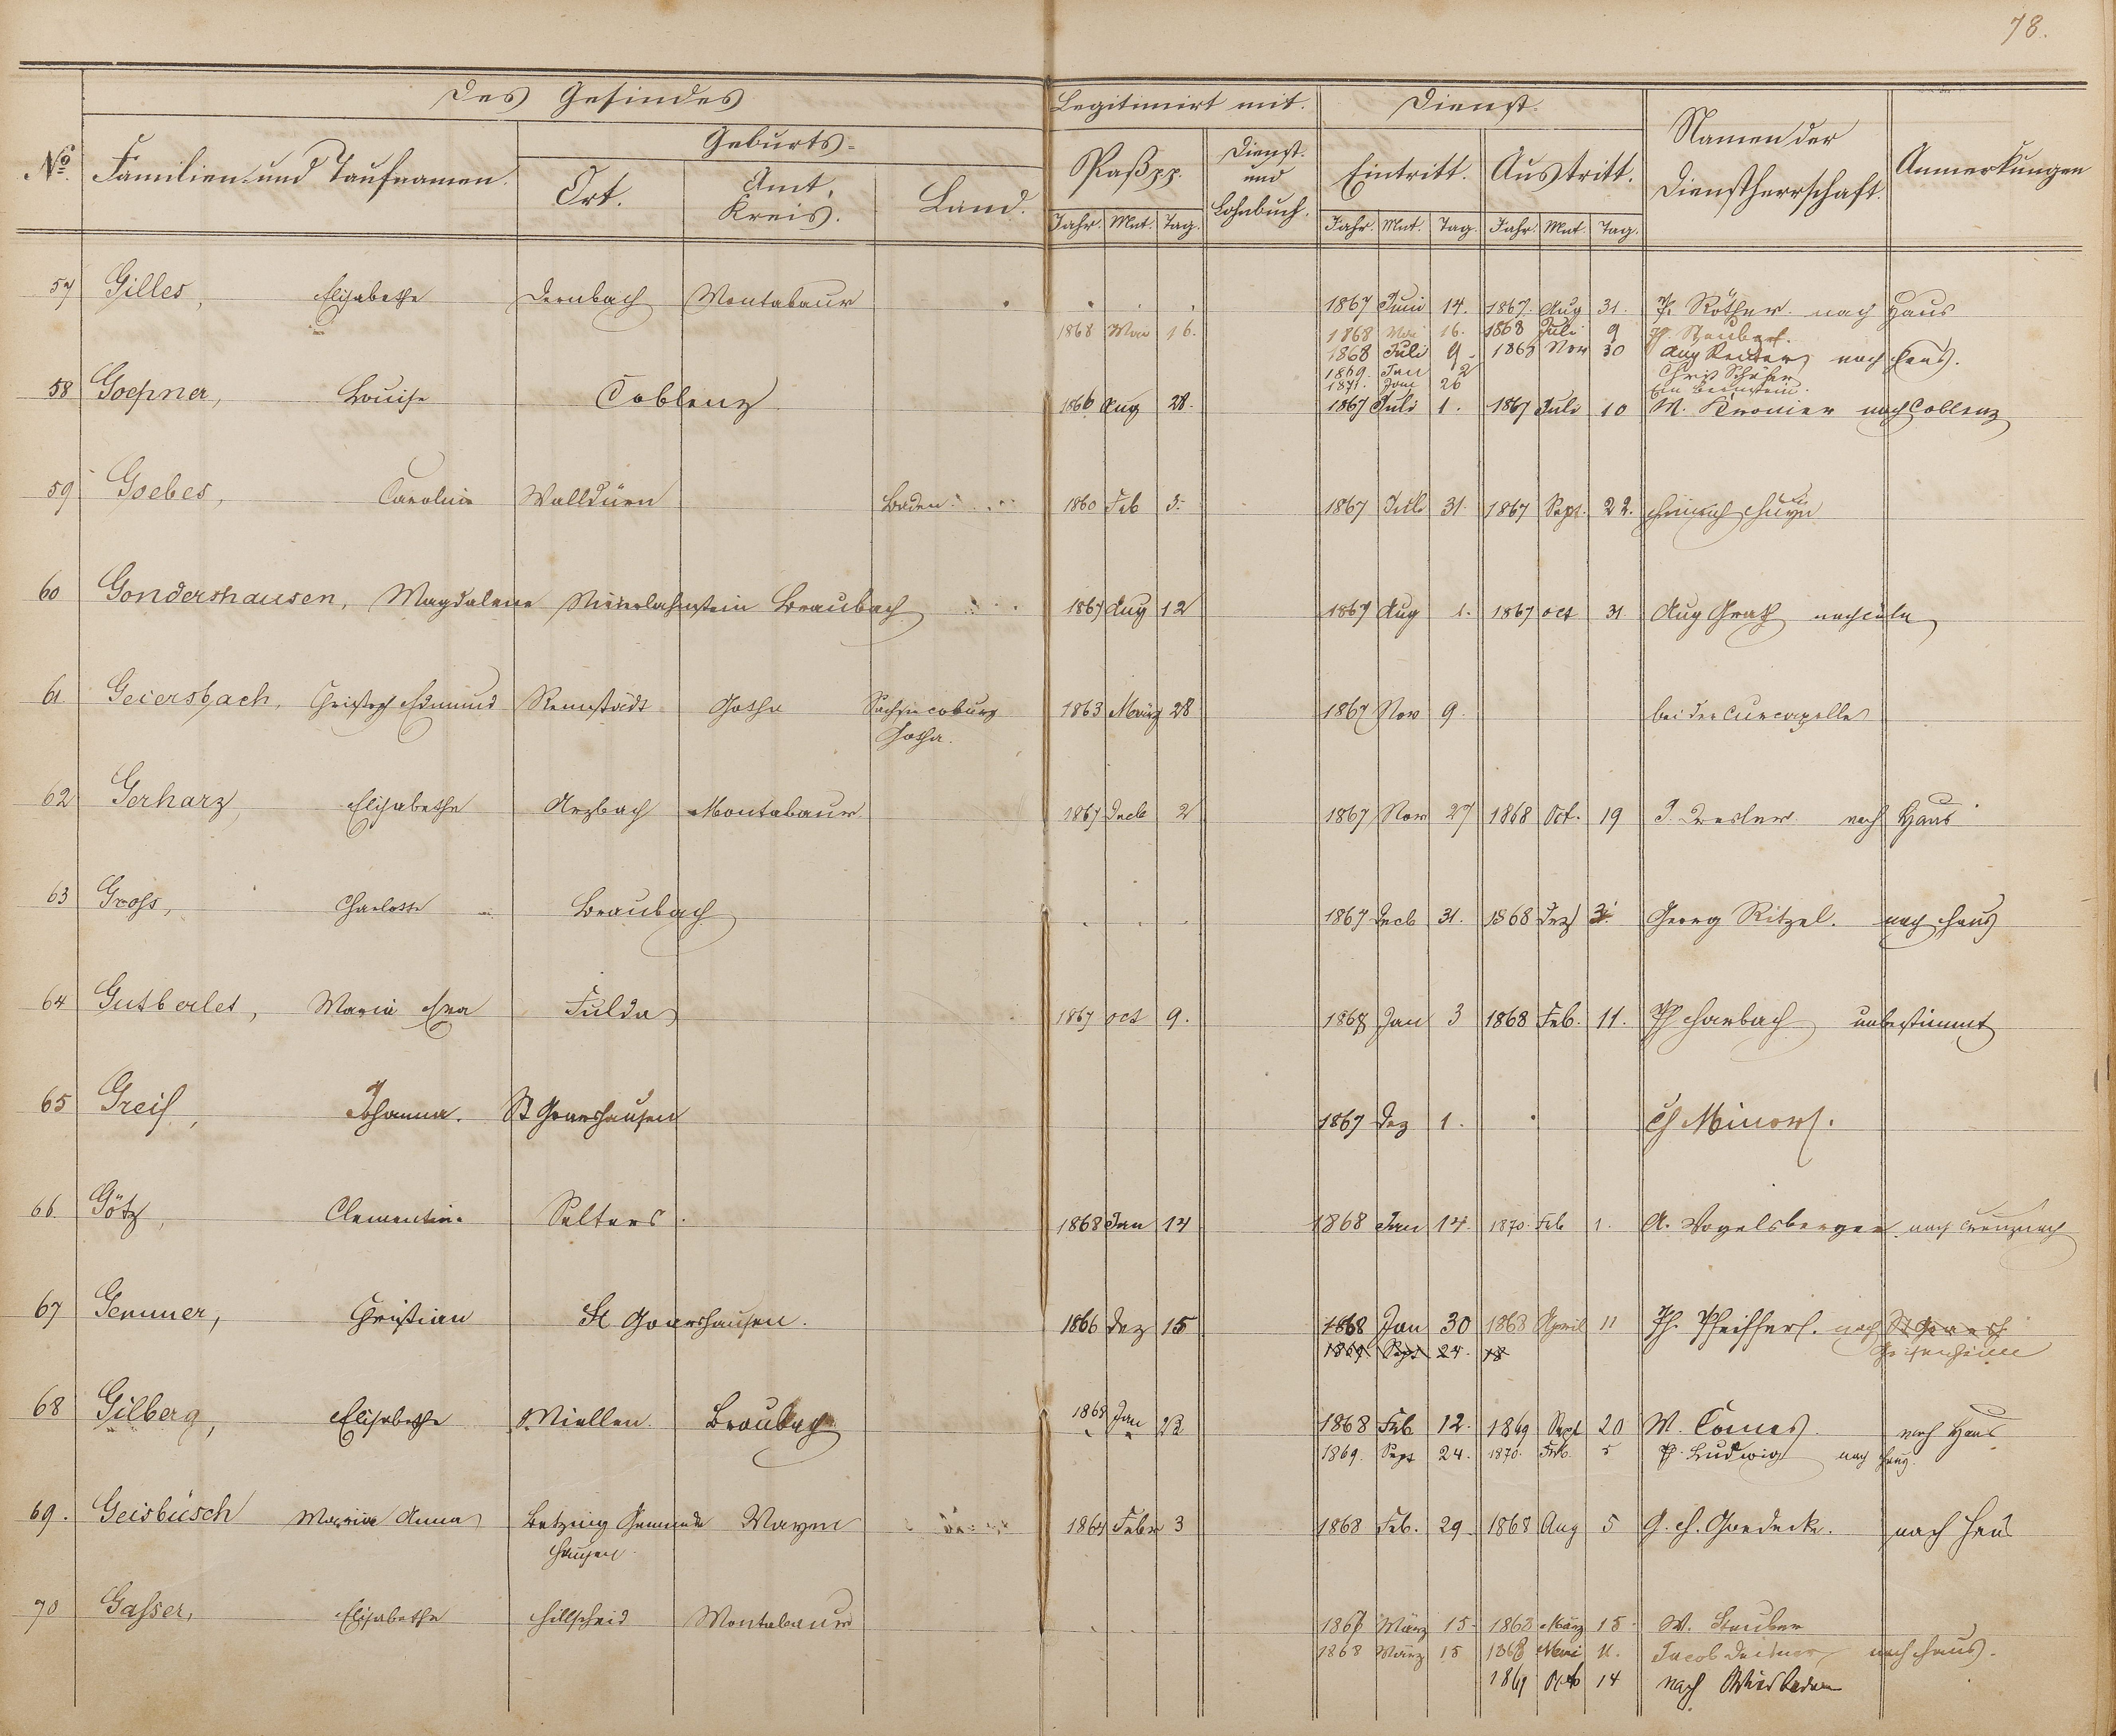 78.
Des Gesindes Legitimirt mit. Dienst.
No. Familien- und Taufnamen. Geburts- Paß pp. Dienst- und Lohnbuch. Eintritt. Austritt. Namen der Dienstherrschaft. Anmerkungen
Ort. Amt, Kreis. Land.
Jahr. Mnt. Tag. Jahr. Mnt. Tag. Jahr. Mnt. Tag.
57 Gilles, Elisabethe Dernbach Montabaur 1867 Juni 14. 1867. Aug 31. P. Röther nach Haus
1868 Mai 16. 1868 Mai 16. 1868 Juli 9
1868 Juli 9 1868 Nov 30 Aug nach Haus.
1869. Jan 2 Chris Schäfer
1871. Jan 26
58 Goepner, Louise Coblenz 1866 Aug 28. 1867 Juli 1. 1867 Juli 10 M. Kronier nach Coblenz
59 Goebes, Caroline Walldürn Baden 1860 Feb 3. 1867 Juli 31. 1867 Sept. 22. Heinrich
60 Gondershausen, Magdalene Niederlahnstein Braubach 1867 Aug 12 1867 Aug 1. 1867 oct 31. Aug Grath nach Cöln
61. Geiersbach, Christoph Edmund Remstädt Gotha Sachsen coburg 1863 März 28 1867 Nov 9. bei der Curcapelle
Gotha.
62 Gerharz, Elisabethe Arzbach Montabaur 1867 Decb 2 1867 Nov 27 1868 Oct. 19 nach Haus
63 Gross, Charlotte Braubach 1867 Decb 31. 1868 Dez Georg Ritzel. nach Haus
64 Gutberlet, Maria Eva Fulda 1867 oct 9. 1868 Jan 3 1868 Feb. 11. Ph Harbach unbestimmt
65 Greif, Johanna. St Goarshausen 1867 Dez 1. Ch Minor.
66. Götz, Clementine Selters. 1868 Jan 14 1868 Jan 14. 1870. Feb 1. A. Vogelsberger. nach Creuznach
67 Gemmer, Christian St Goarshausen. 1866 Dez 15 1868 Jan 30 1868 April 11 Ph. Pfeiffer. nach St Goarsh
1869 Sept 24. 18 Geisenheim
68 Gilberg, Elisabethe Miellen. Braubach 1868 Jan 23 1868 Feb. 12. 1869 Sept 20 W. Comes nach Haus
1869. Sept 24. 1870. Feb. 5 P. Ludwig nach Haus.
69. Geisbüsch Maria Anna Betzing Gemeinde Mayen 1864 Febr 3 1868 Feb. 29. 1868 Aug 5 G. H. Goedecke. nach Haus
hausen
70 Gasser, Elisabethe Hillscheid Montabaur 1867 März 15. 1868 März 15. W. Stauber
1868 März 15 1868 Mai 11. Jacob nach Haus.
1869 Oct 14 nach Wiesbaden